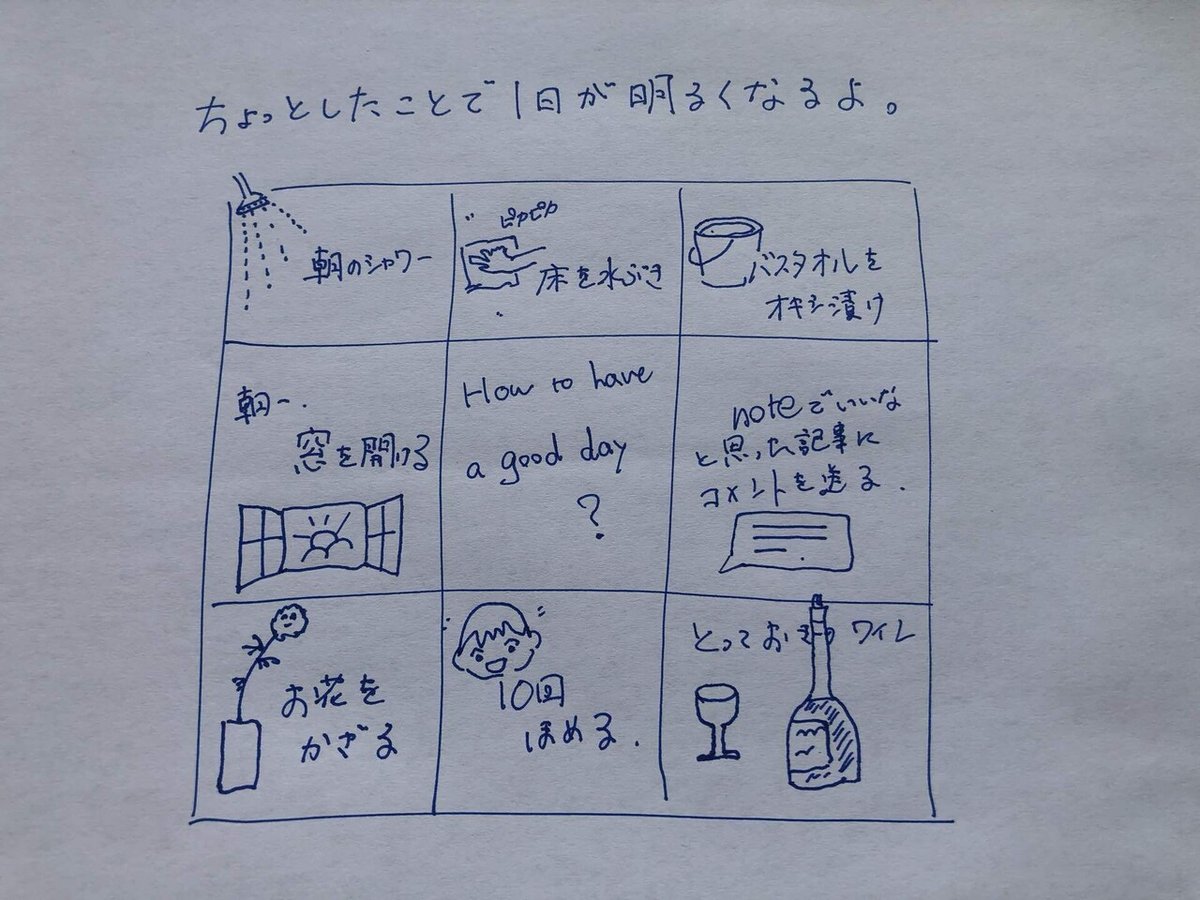 ちょっとしたことで1日が明るくなるよ。
朝のシャワー
ピカピカ
床を水ぶき
バスタオルを
オキシ漬け
朝一.
窓を開ける
How to have
a good day
?
noteでいいな
と思った記事に
コメントを送る.
お花を
かざる
10回
ほめる.
とっておきの ワイン